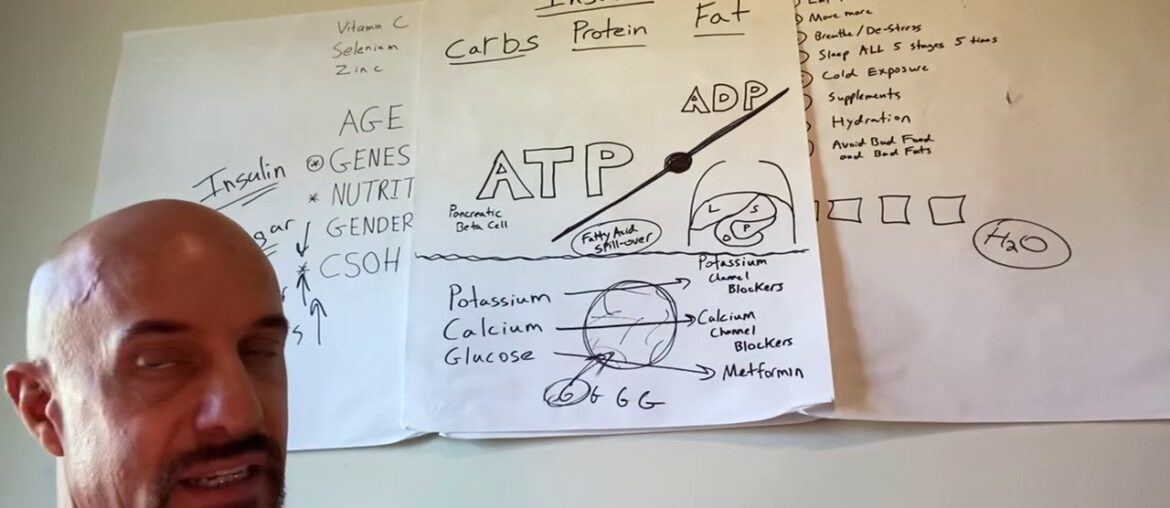 Vitamin C
Selenium
Zinc
AGE
GENES
NUTRIT
GENDER
CSOH
Insulin
Carbs Protein Fat
ADP
ATP
Pancreatic
Beta Cell
Fatty Acid
Spill-over
L S
P
Potassium
Calcium
Glucose
Potassium
Channel
Blockers
Calcium
Channel
Blockers
Metformin
G G G G
Move more
Breathe/De-Stress
Sleep ALL 5 stages 5 times
Cold Exposure
Supplements
Hydration
Avoid Bad Food
and Bad Fats
H₂O